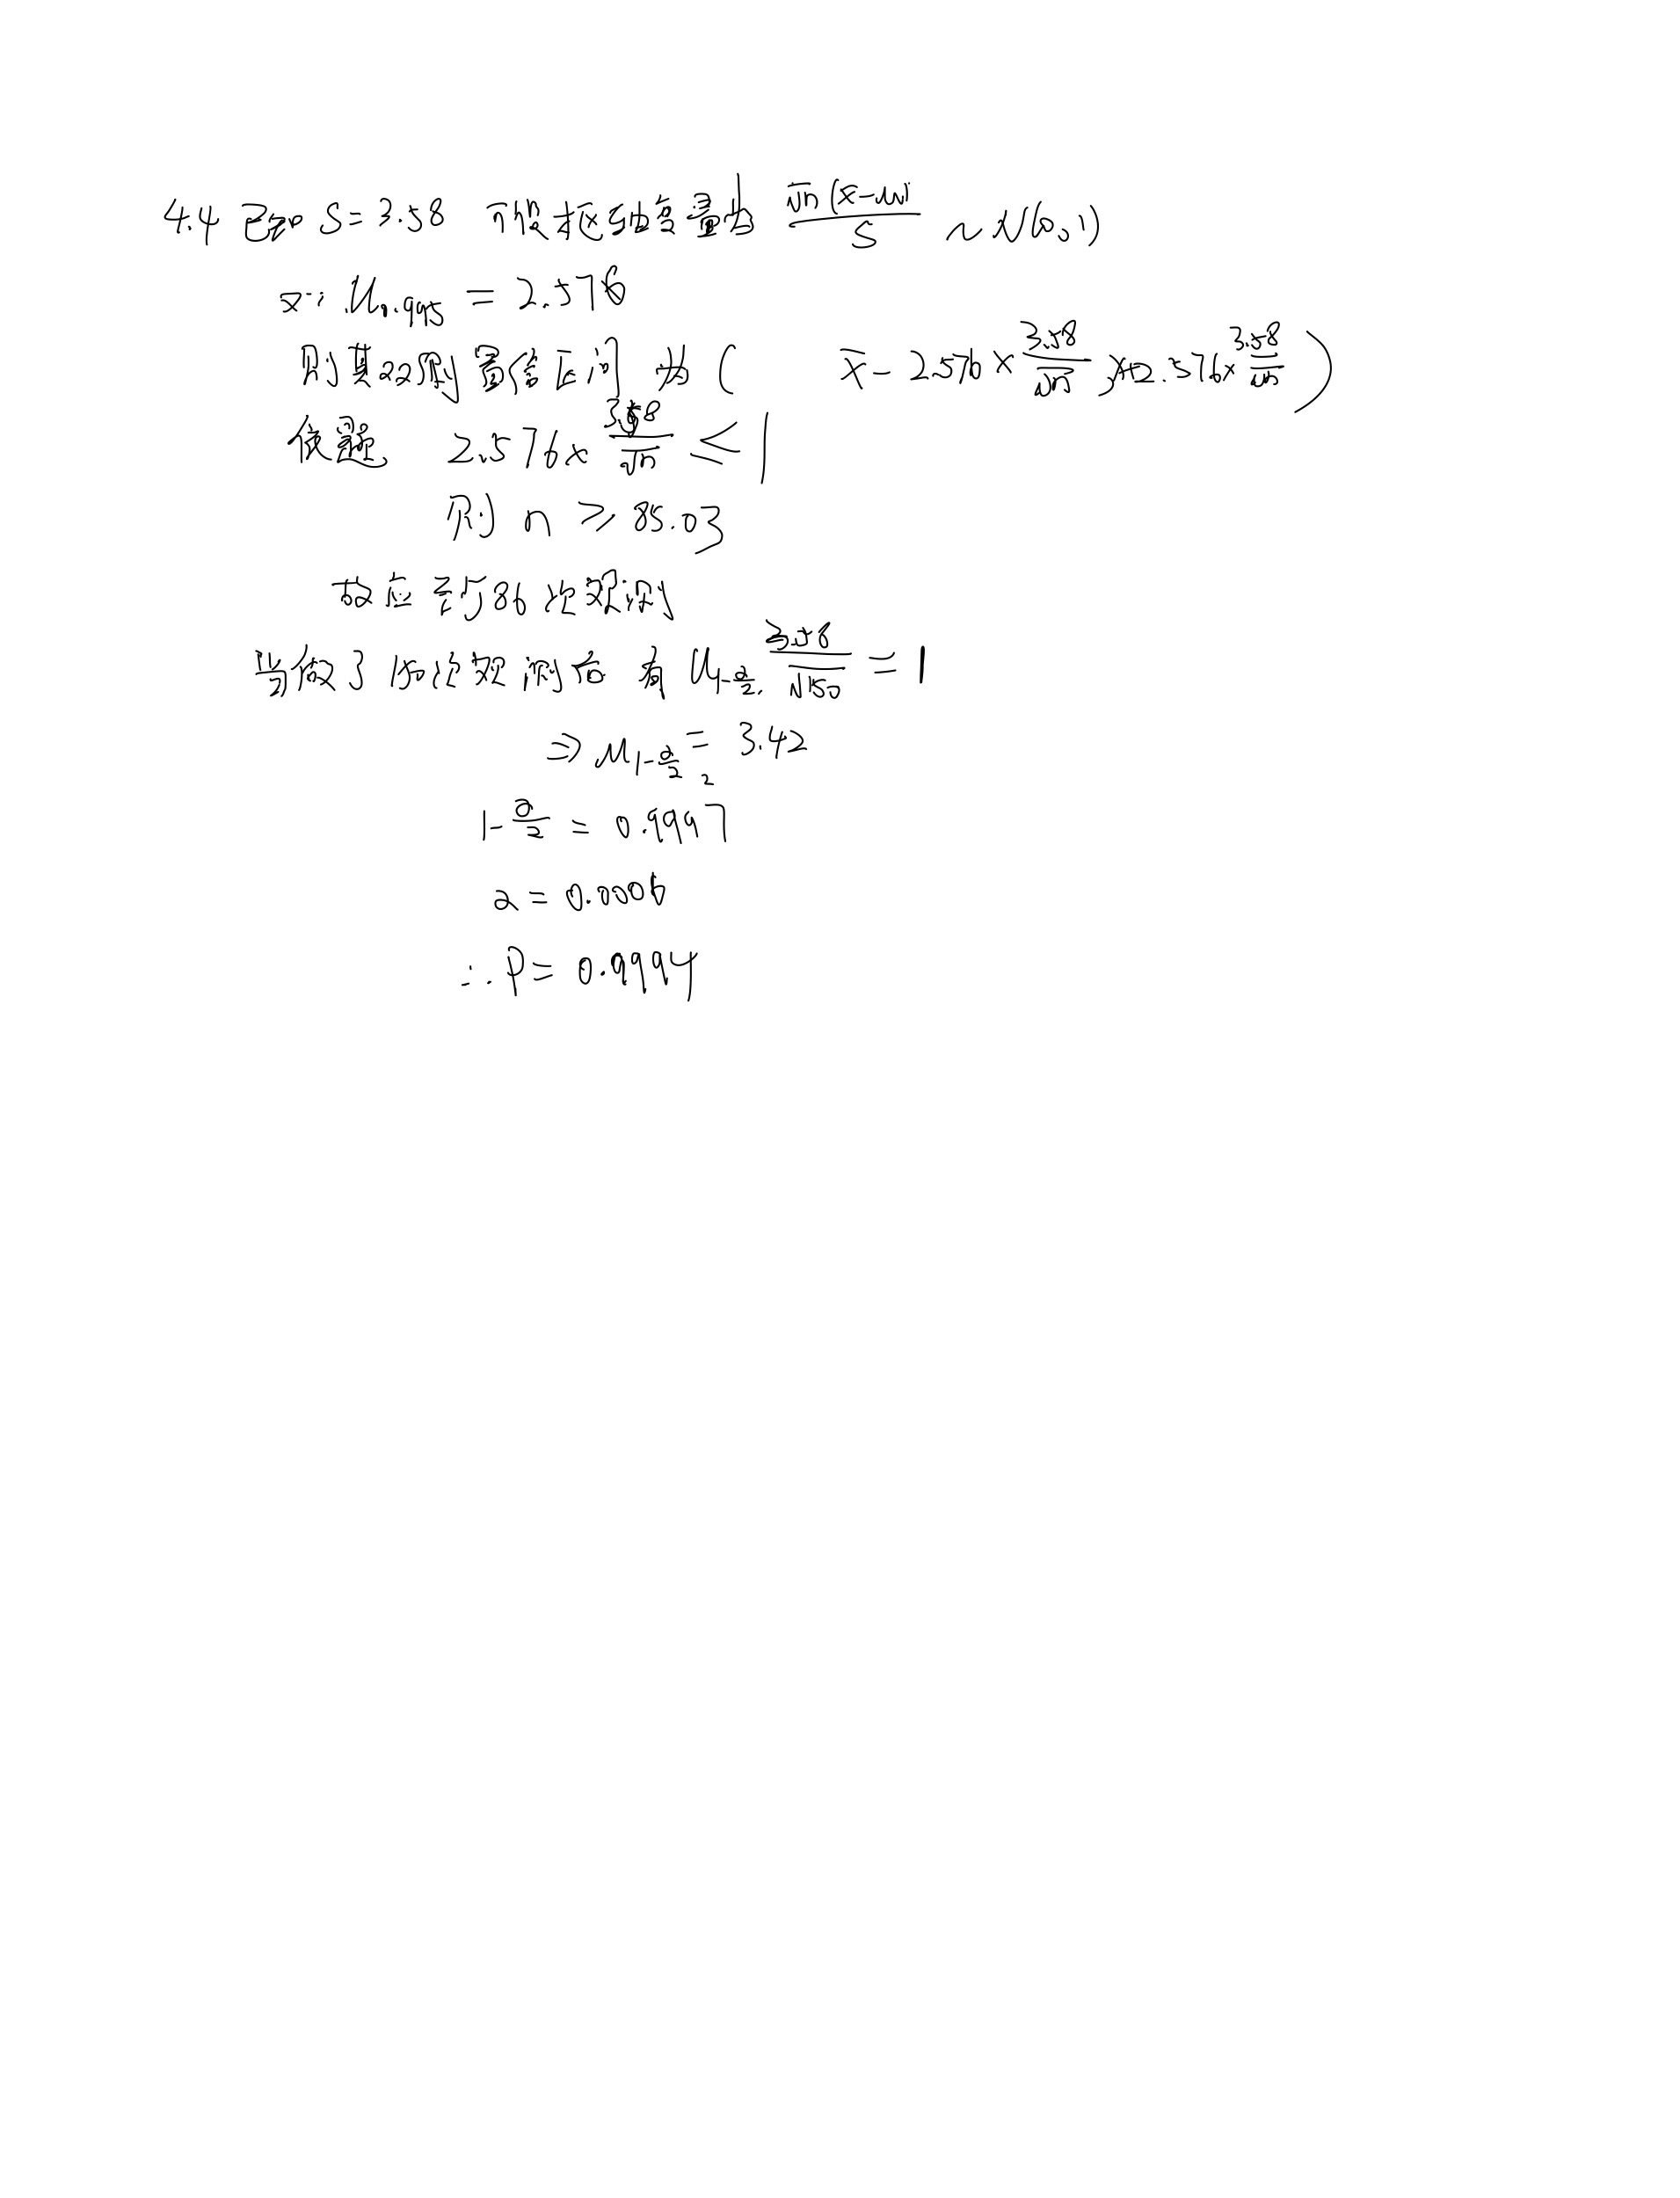 4.4 已知 S=3.58 可假枢轴变量为 √n(x̄-μ)/S ~N(0,1)
又∵ u0.995 = 2.576
则其双侧置信区间为( x̄ - 2.576×3.58/√n, x̄+2.576×3.58/√n )
依题 2.576×3.58/√n ≤ 1
则 n ≥ 85.03
故应至少86次观测
当做了150次观测后 有 u1-α/2 · 3.58/√150 = 1
⇒ μ1-α/2 = 3.42
1-α/2 = 0.9997
α = 0.0006
∴ P = 0.9994